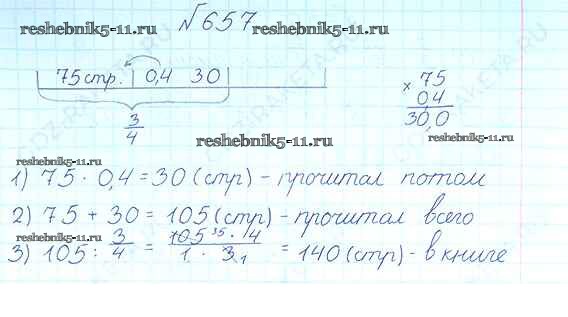 №657
reshebnik5-11.ru reshebnik5-11.ru
75 стр. 0,4 30
3/4
× 75
0,4
30,0
reshebnik5-11.ru
reshebnik5-11.ru
reshebnik5-11.ru
1) 75 · 0,4 = 30 (стр) - прочитал потом
2) 75 + 30 = 105 (стр) - прочитал всего
reshebnik5-11.ru
3) 105 : 3/4 = 105 35 · 4 / 1 · 3 1 = 140 (стр) - в книге